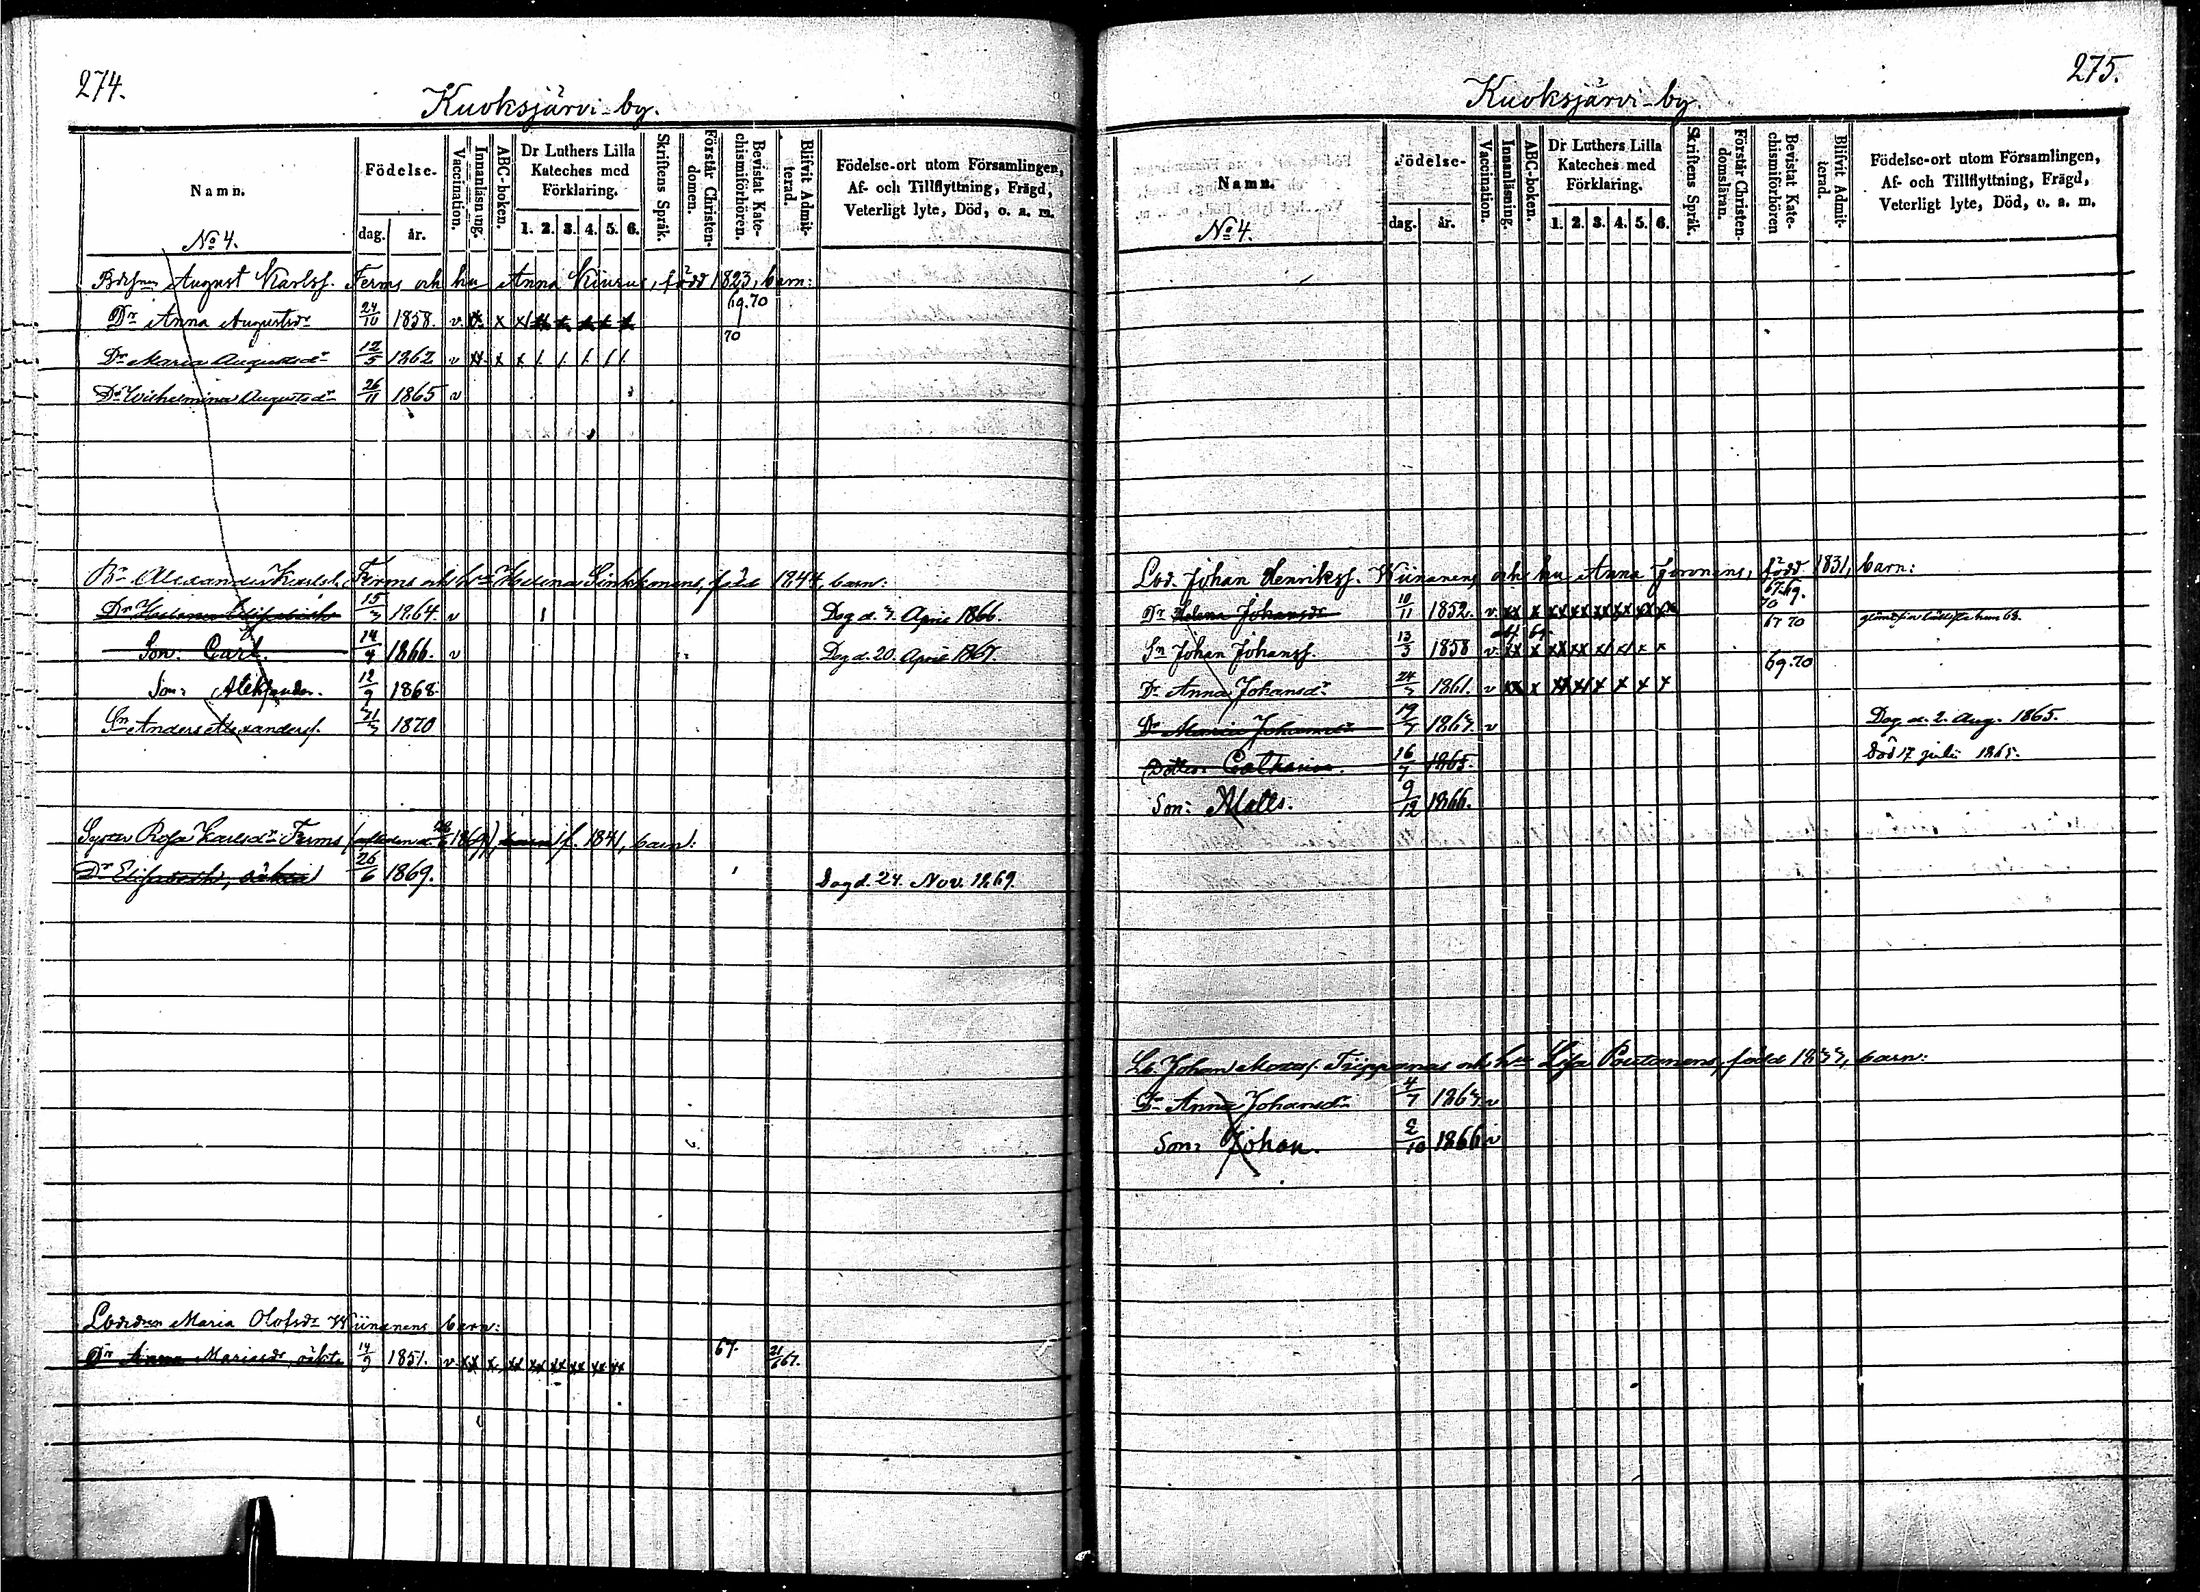 274.
Kuoksjärvi by.
Namn.
Födelse.
dag.
år.
Vaccination.
Innanläsning.
ABC-boken.
Dr Luthers Lilla Kateches med Förklaring.
1. 2. 3. 4. 5. 6.
Skriftens Språk.
Förstår Christendomen.
Bevistat Katechismiförhören.
Blifvit Admitterad.
Födelse-ort utom Församlingen, Af- och Tillflyttning, Frägd, Veterligt lyte, Död, o. a. m.
No 4.
August Karlss. Ferms och hu Anna Kiurus, född 1823, barn:
Dr Anna Augustsdr 24/10 1858. v. x x 69.70
Dr Maria Augustsdr 12/5 1862 v x x x 70
Dr Wilhelmina Augustsdr 26/11 1865 v
Br Alexander Karlss. Ferms och hu Helena Sinkkonens, född 1844, barn:
Dr Helena Elisabeth 15/3 1864. v Dog d. 3. April 1866.
Son. Carl. 14/4 1866. v Dog d. 20. April 1867.
Son: Alexander. 12/9 1868.
Sn Anders Alexanderss. 21/3 1870
Syster Rosa Karlsdr Ferms 1869), f. 1841, barn:
Dr Elisabeth, oäkta 26/6 1869. Dog d. 24. Nov. 1869.
Maria Olofsdr Wiinanens barn:
Dr Anna Mariasdr, oäkta 14/9 1851. v. xx x xx xx xx xx xx xx 67. 67.
275.
Kuoksjärvi by.
Namn.
Födelse.
dag.
år.
Vaccination.
Innanläsning.
ABC-boken.
Dr Luthers Lilla Kateches med Förklaring.
1. 2. 3. 4. 5. 6.
Skriftens Språk.
Förstår Christendomsläran.
Bevistat Katechismiförhören
Blifvit Admitterad.
Födelse-ort utom Församlingen, Af- och Tillflyttning, Frägd, Veterligt lyte, Död, o. a. m.
No 4.
Lod. Johan Henrikss. Wiinanens och hu Anna Joronens, född 1831, barn:
Dr Helena Johansdr 10/11 1852. v. xx x xx xx xx xx xx xx 67.69. 70
Sn Johan Johanss. 13/3 1858 v. xx x xx xx x x x x 67 70
Dr Anna Johansdr 24/3 1861. v xx x x x x x x x 69.70
Dr Maria Johansdr 19/3 1863. v Dog d. 2. Aug. 1865.
Dotter: Catharina. 16/7 1865. Död 17 juli 1865.
Son: Matts. 9/12 1866.
Johan Trippanas och hu Lisa Poutanens, född 1833, barn:
Dr Anna Johansdr 4/7 1863. v
Son: Johan. 2/10 1866 v